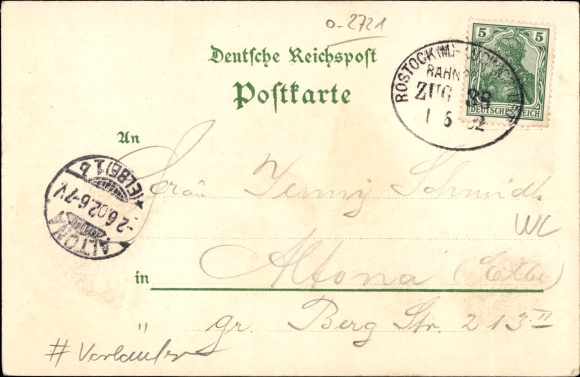 o-2721
Deutsche Reichspost
Postkarte
5 5
DEUTSCHES REICH
ROSTOCK (M)-
BAHN
ZUG 38
1 6 02
An
Frau Jenny Schmidt
WL
ALTONA
-2.6.02.6-7V.
(ELBE) 1. b
in Altona (Elbe)
gr. Berg Str. 213 II
# Vorläufer